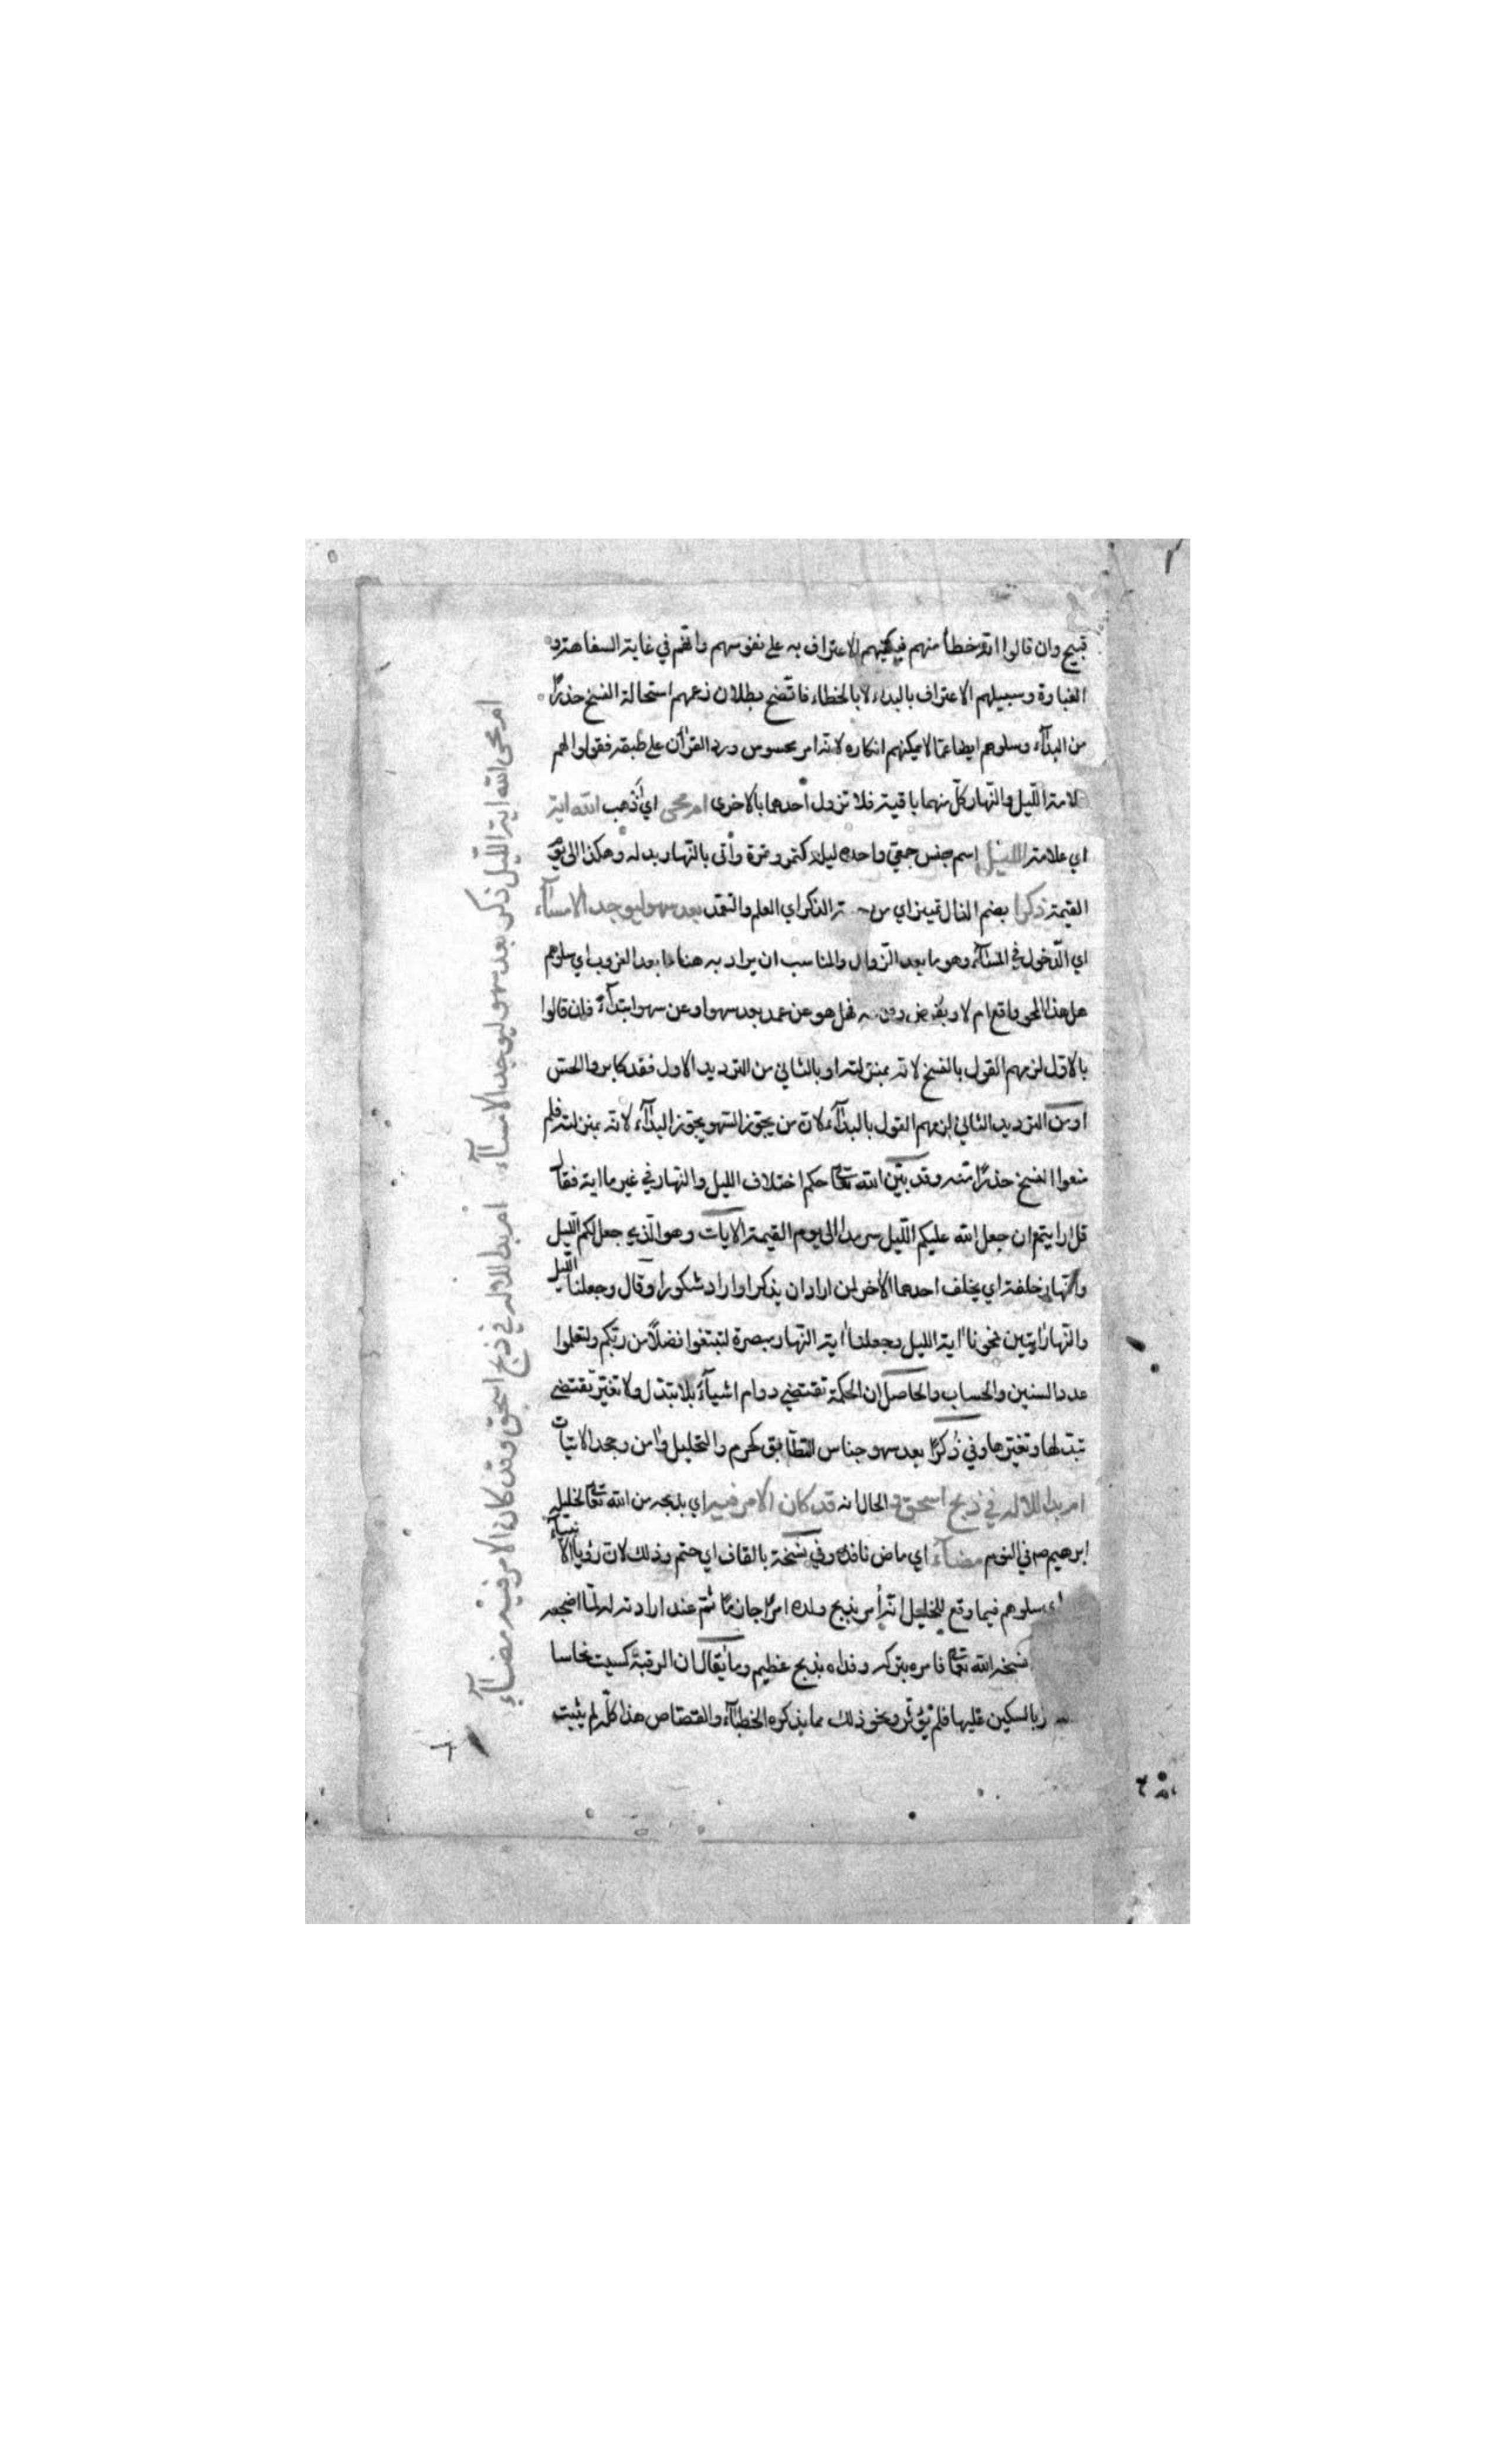 قبيح وان قالوا انه خطأ منهم فيكفيهم الاعتراف به على نفوسهم وانهم في غاية السفاهة و
الغباوة وسبيلهم الاعتراف بالبداء لا بالخطاء فاتضح بطلان زعمهم استحالة النسخ حذرًا
من البدآء وسلوهم ايضا عما لا يمكنهم انكاره لانه امر محسوس ورد القرآن على طبقه فقولوا لهم
علامة الليل والنهار كل منهما باقية فلا تزول احدهما بالاخرى ام محى اي اذهب الله اية
اي علامة الليل اسم جنس جمعي واحده ليلة كتمر وتمرة وأتى بالنهار بدله وهكذا الى يوم
القيمة ذكرا بضم الذال تمييز اي من الذكر اي العلم والتعمد بعد سهو ليوجد الامسآء
اي الدخول في المسآء وهو ما بعد الزوال والمناسب ان يراد به هنا ما بعد الغروب اي سلوهم
هل هذا المحو واقع ام لا وبفرض وقوعه فهل هو عن عمد بعد سهو او عن سهو ابتدآء فان قالوا
بالاول لزمهم القول بالنسخ لانه بمنزلته او بالثاني من الترديد الاول فقد كابروا الحس
او من الترديد الثاني لزمهم القول بالبدآء لان من يجوز السهو يجوز البدآء لانه بمنزلته فلم
منعوا النسخ حذرًا منه وقد بين الله تعالى حكم اختلاف الليل والنهار في غير ما اية فقال
قل ارايتم ان جعل الله عليكم الليل سرمدا الى يوم القيمة الآيات وهو الذي جعل لكم الليل
والنهار خلفة اي يخلف احدهما الآخر لمن اراد ان يذكر او اراد شكورا وقال وجعلنا الليل
والنهار ايتين فمحونا اية الليل وجعلنا اية النهار مبصرة لتبتغوا فضلًا من ربكم ولتعلموا
عدد السنين والحساب والحاصل ان الحكمة تقتضي دوام اشيآء بلا تبدل ولا تغير وتقتضي
تبدلها وتغيرها وفي ذُكرًا بعد سهو جناس الطباق كحرم والتحليل وامن وجحد الاتيات
ام بدا للاله في ذبح اسحق و الحال انه قد كان الامر فيه اي بذبحه من الله تعالى لخليله
ابرهيم صم في النوم مضآء اي ماض نافذ وفي نسخة بالقاف اي حتم وذلك لان رؤيا الانبيآء
اي سلوهم فيما وقع للخليل انه أمر بذبح ولده امرًا جازمًا ثم عند ارادته له لما اضجعه
نسخه الله تعالى فامره بتركه وفداه بذبح عظيم وما يقال ان الرقبة كسيت نحاسا
بالسكين عليها فلم يؤثر ونحو ذلك مما يذكره الخطبآء والقصاص هذا كله لم يثبت
ام محى الله اية الليل ذكر بعد سهو ليوجد الامسآء ام بدا للاله في ذبح اسحق وقد كان الامر فيه مضآء